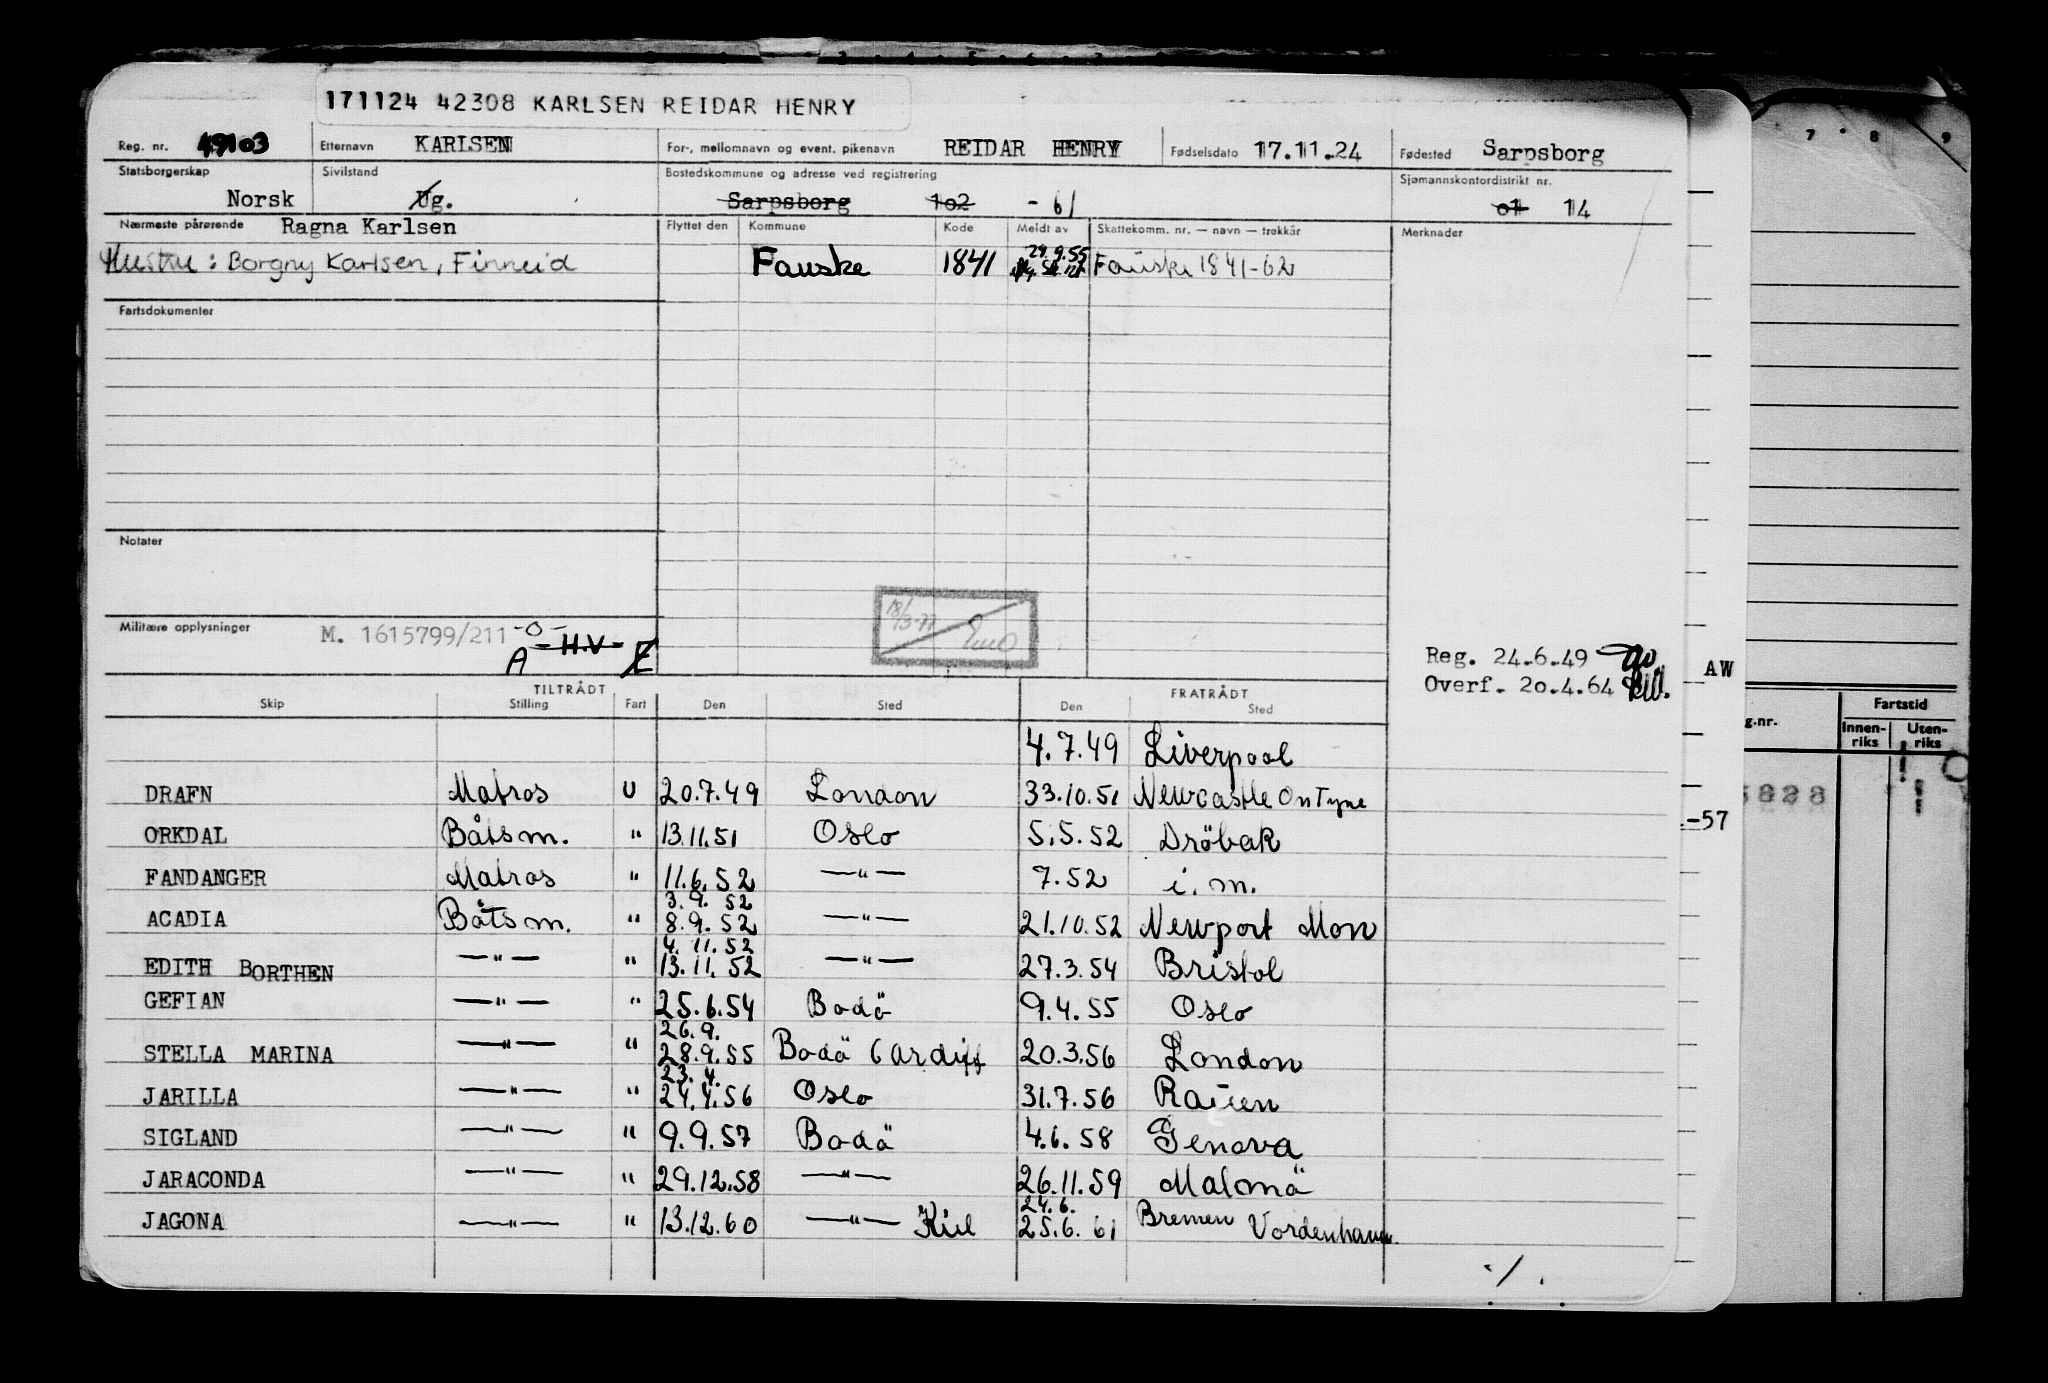 171124 42308 KARLSEN REIDAR HENRY
Reg. nr. 49103 Etternavn KARLSEN For-, mellomnavn og event. pikenavn REIDAR HENRY Fødselsdato 17.11.24 Fødested Sarpsborg
Statsborgerskap Norsk Sivilstand Ug. Bostedskommune og adresse ved registrering Sarpsborg 102 - 61 Sjømannskontordistrikt nr. 01 14
Nærmeste pårørende Ragna Karlsen Flyttet den Kommune Kode Meldt av Skattekomm. nr. — navn — trekkår Merknader
Hustru: Borgny Karlsen, Finneid Fauske 1841 29.9.55 Fauske 1841-62
Fartsdokumenter
Notater
18/3-77
Militære opplysninger M. 1615799/211 -0-
A - H.V - E
Reg. 24.6.49
Overf. 20.4.64
AW
TILTRÅDT FRATRÅDT
Skip Stilling Fart Den Sted Den Sted
4.7.49 Liverpool
DRAFN Matros U 20.7.49 London 33.10.51 Newcastle On Tyne
ORKDAL Båtsm. " 13.11.51 Oslo 5.5.52 Dröbak
FANDANGER Matros " 11.6.52 —"— 7.52 i. m.
3.9. 52
ACADIA Båtsm. " 8.9.52 —"— 21.10.52 Newport Mon
4. 11.52
EDITH BORTHEN —"— " 13.11.52 —"— 27.3.54 Bristol
GEFIAN —"— " 25.6.54 Bodö 9.4.55 Oslo
26.9.
STELLA MARINA —"— " 28.9.55 Bodö Cardiff 20.3.56 London
23. 4.
JARILLA —"— " 24.4.56 Oslo 31.7.56 Rauen
SIGLAND —"— " 9.9.57 Bodö 4.6.58 Genova
JARACONDA —"— " 29.12.58 —"— 26.11.59 Malmö
24.6.
JAGONA —"— " 13.12.60 —"— Kiel 25.6. 61 Bremen Vordenham
./.
-57
7 8 9
g.nr. Fartstid
Innen-riks Uten-riks